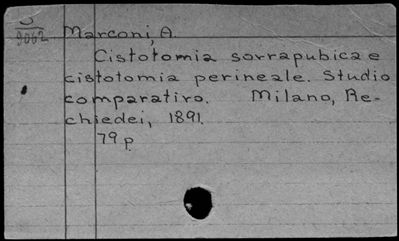 9062
Marconi, A.
Cistotomia sovrapubica e
cistotomia perineale. Studio
comparativo. Milano, Re-
chiedei, 1891.
79 p.